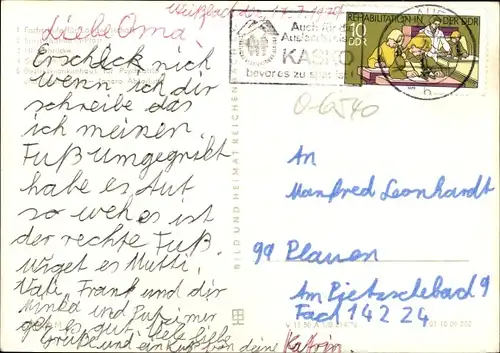 Weißbach, den 17.7.1979
Liebe Oma!
Erschreck nich
wenn ich dir
schreibe das
ich meinen
Fuß umgegnikt
habe es tut
so weh es ist
der rechte Fuß.
Wi get es Mutti,
Vati, Frank und dir
Minka und Putzi mir
get es gut. Viele liebe
Grüße und ein Kuß von deine Katrin
Auch für
Auslands
KASKO
bevor es zu spät ist!
REHABILITATION IN DER DDR
10
DDR
O-6540
BILD UND HEIMAT REICHENBACH
An
Manfred Leonhardt
99 Plauen
Am Pietzschebach 9
Fach 142 24
V 11 50 A 1/B
01 10 09 202